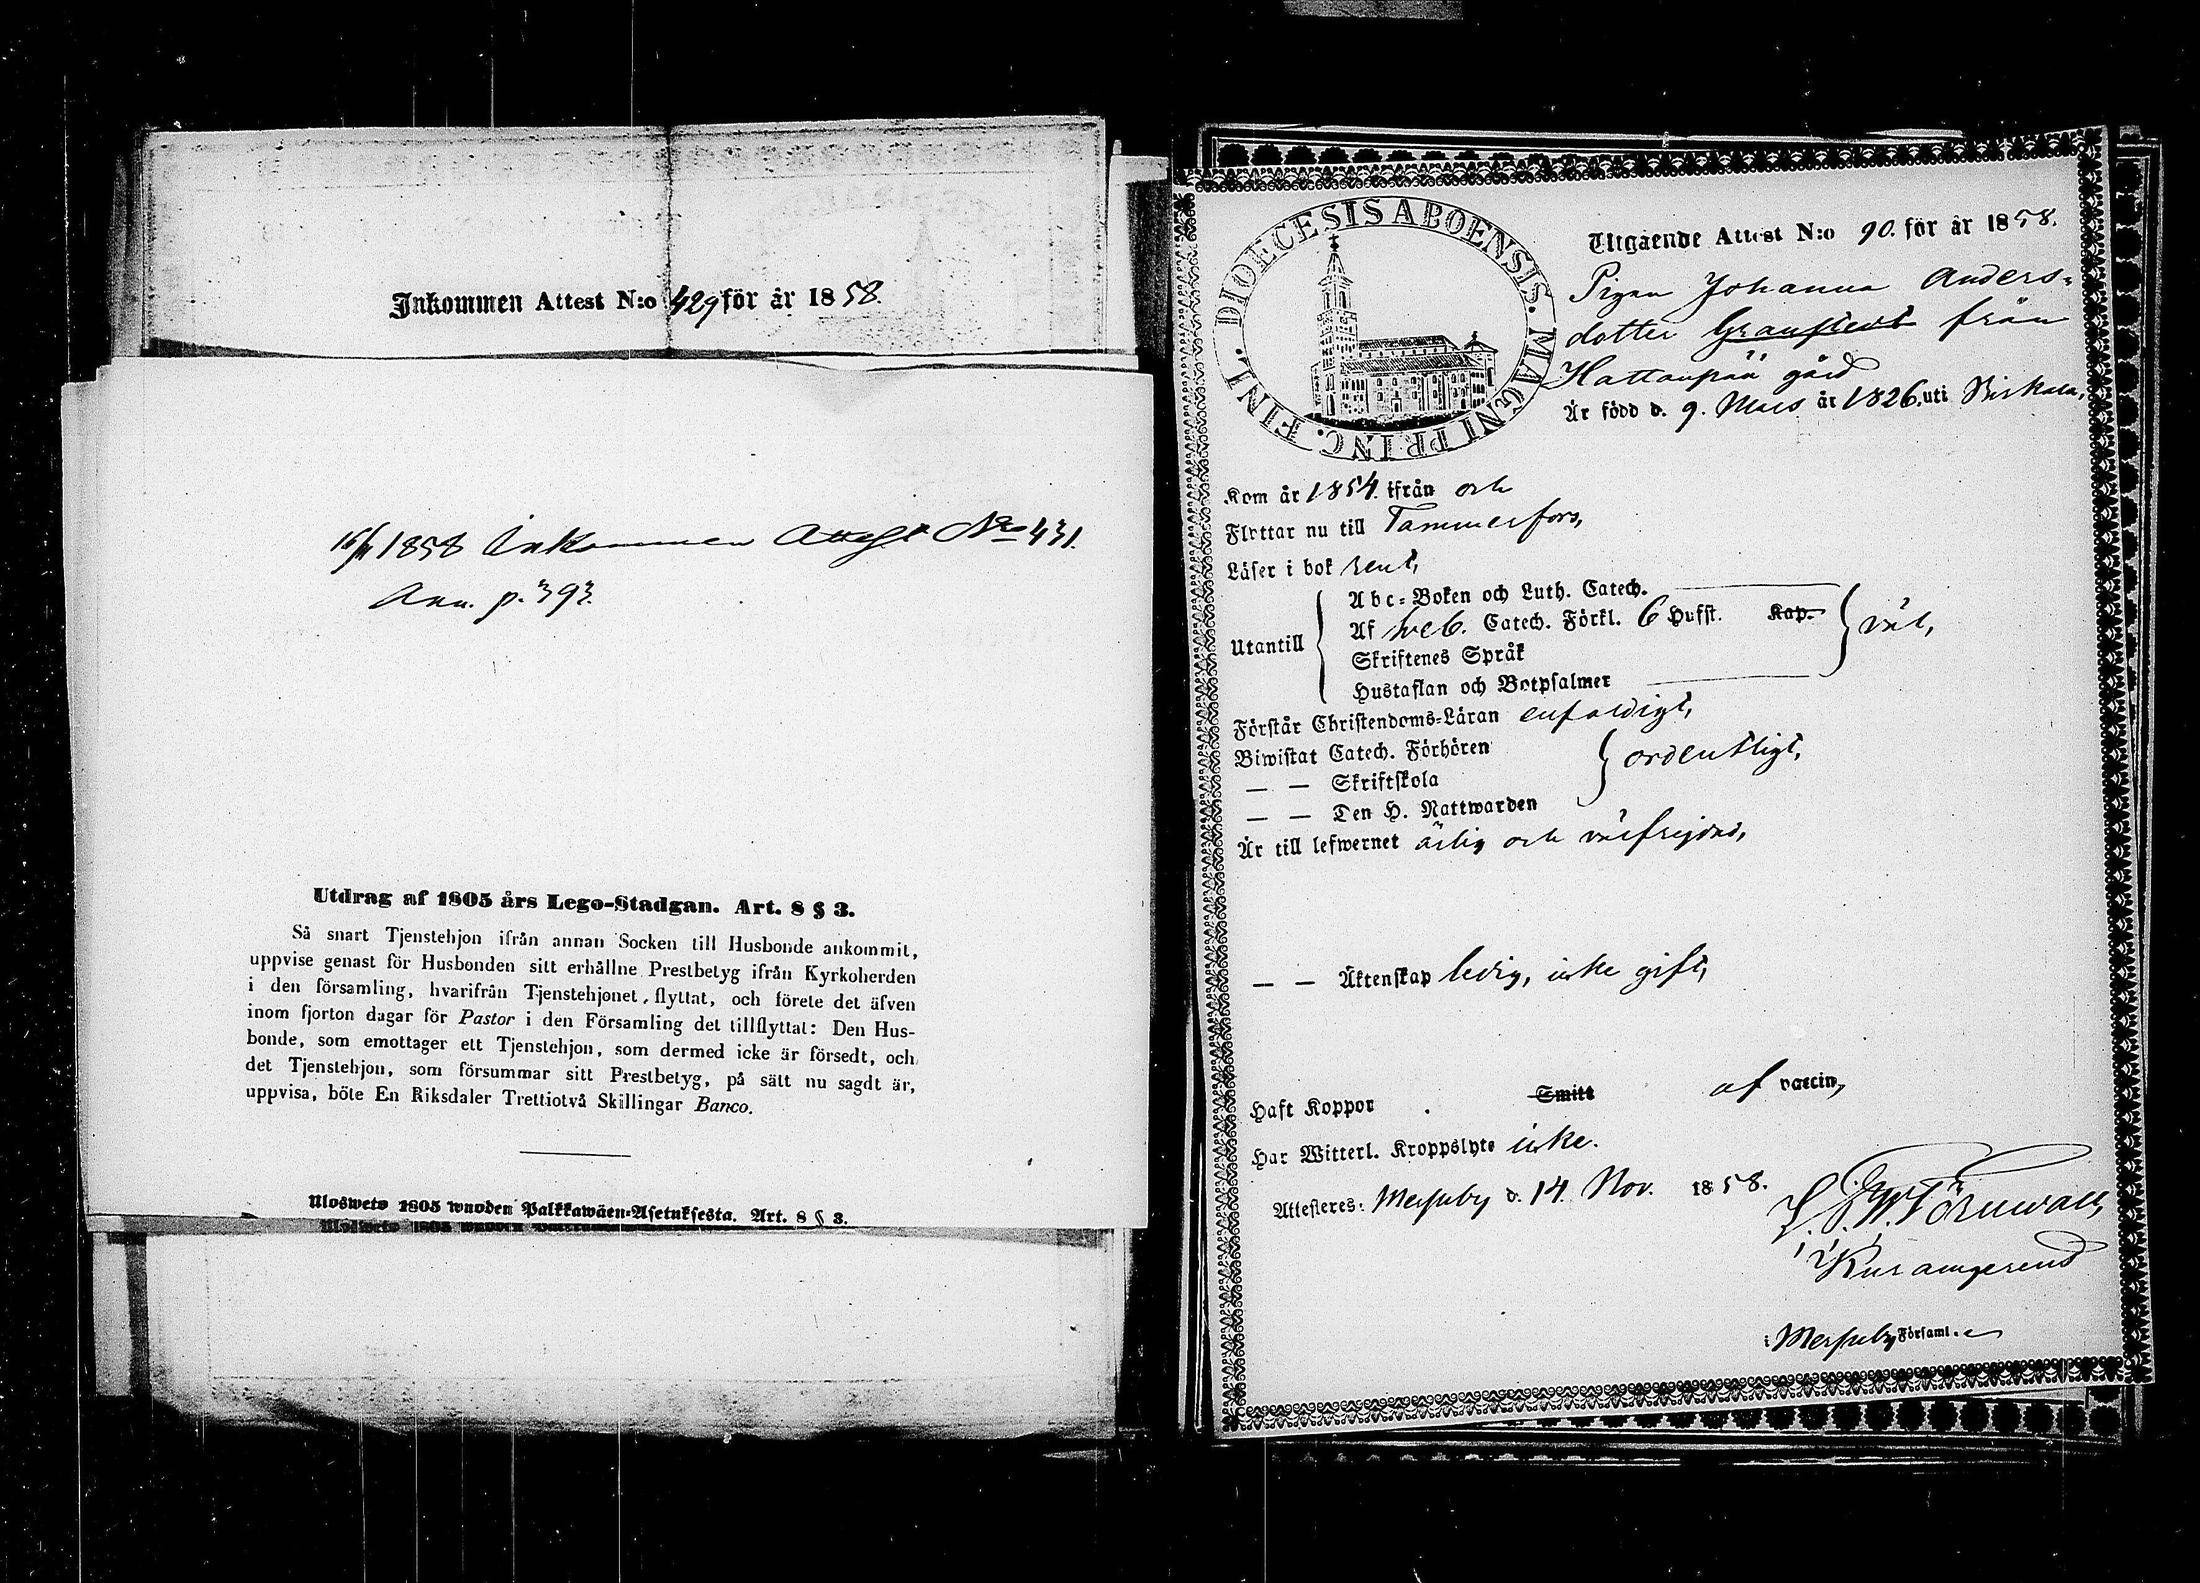 Inkommen Attest N:o 429 för år 1858.
16/11 1858 Inkommen Attest No 431.
Ann. p. 393.
Utdrag af 1805 års Lego-Stadgan. Art. 8 § 3.
Så snart Tjenstehjon ifrån annan Socken till Husbonde ankommit,
uppvise genast för Husbonden sitt erhållne Prestbetyg ifrån Kyrkoherden
i den församling, hvarifrån Tjenstehjonet flyttat, och förete det äfven
inom fjorton dagar för Pastor i den Församling det tillflyttat: Den Hus-
bonde, som emottager ett Tjenstehjon, som dermed icke är försedt, och
det Tjenstehjon, som försummar sitt Prestbetyg, på sätt nu sagdt är,
uppvisa, böte En Riksdaler Trettiotvå Skillingar Banco.
Ulosweto 1805 wuoden Palkkawäen-Asetuksesta. Art. 8 § 3.
DIOECESIS ABOENSIS. MAGNI PRINC. FINL.
Utgående Attest N:o 90. för år 1858.
Pigan Johanna Anders-
dotter Granstedt från
Hattanpää gård
Är född d. 9. Mars år 1826. uti Birkala,
Kom år 1854. ifrån och
Flyttar nu till Tammerfors,
Läser i bok rent,
Utantill
Abc-Boken och Luth. Catech.
Af Sveb. Catech. Förkl. 6 Hufst. Kap.
Skriftenes Språk
Hustaflan och Botpsalmer
väl,
Förstår Christendoms-Läran enfaldigt,
Biwistat Catech. Förhören
— — Skriftskola
— — Den H. Nattwarden
ordentligt,
Är till lefwernet ärlig och välfrejdad,
— — Äktenskap ledig, icke gift,
Haft Koppor Smitt af vaccin,
Har Witterl. Kroppslyte icke.
Attesteres: Messuby d. 14. Nov. 1858.
Törnwall,
i Messuby Församl.